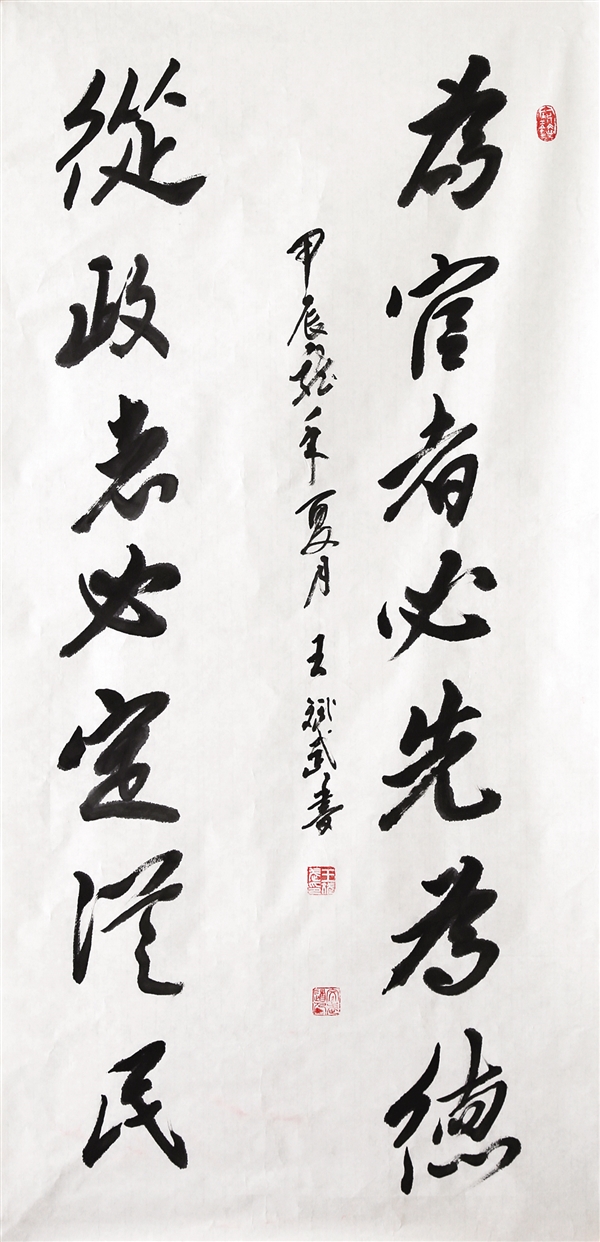 為官者必先為德
從政者必定從民
甲辰龍年夏月王斌武書